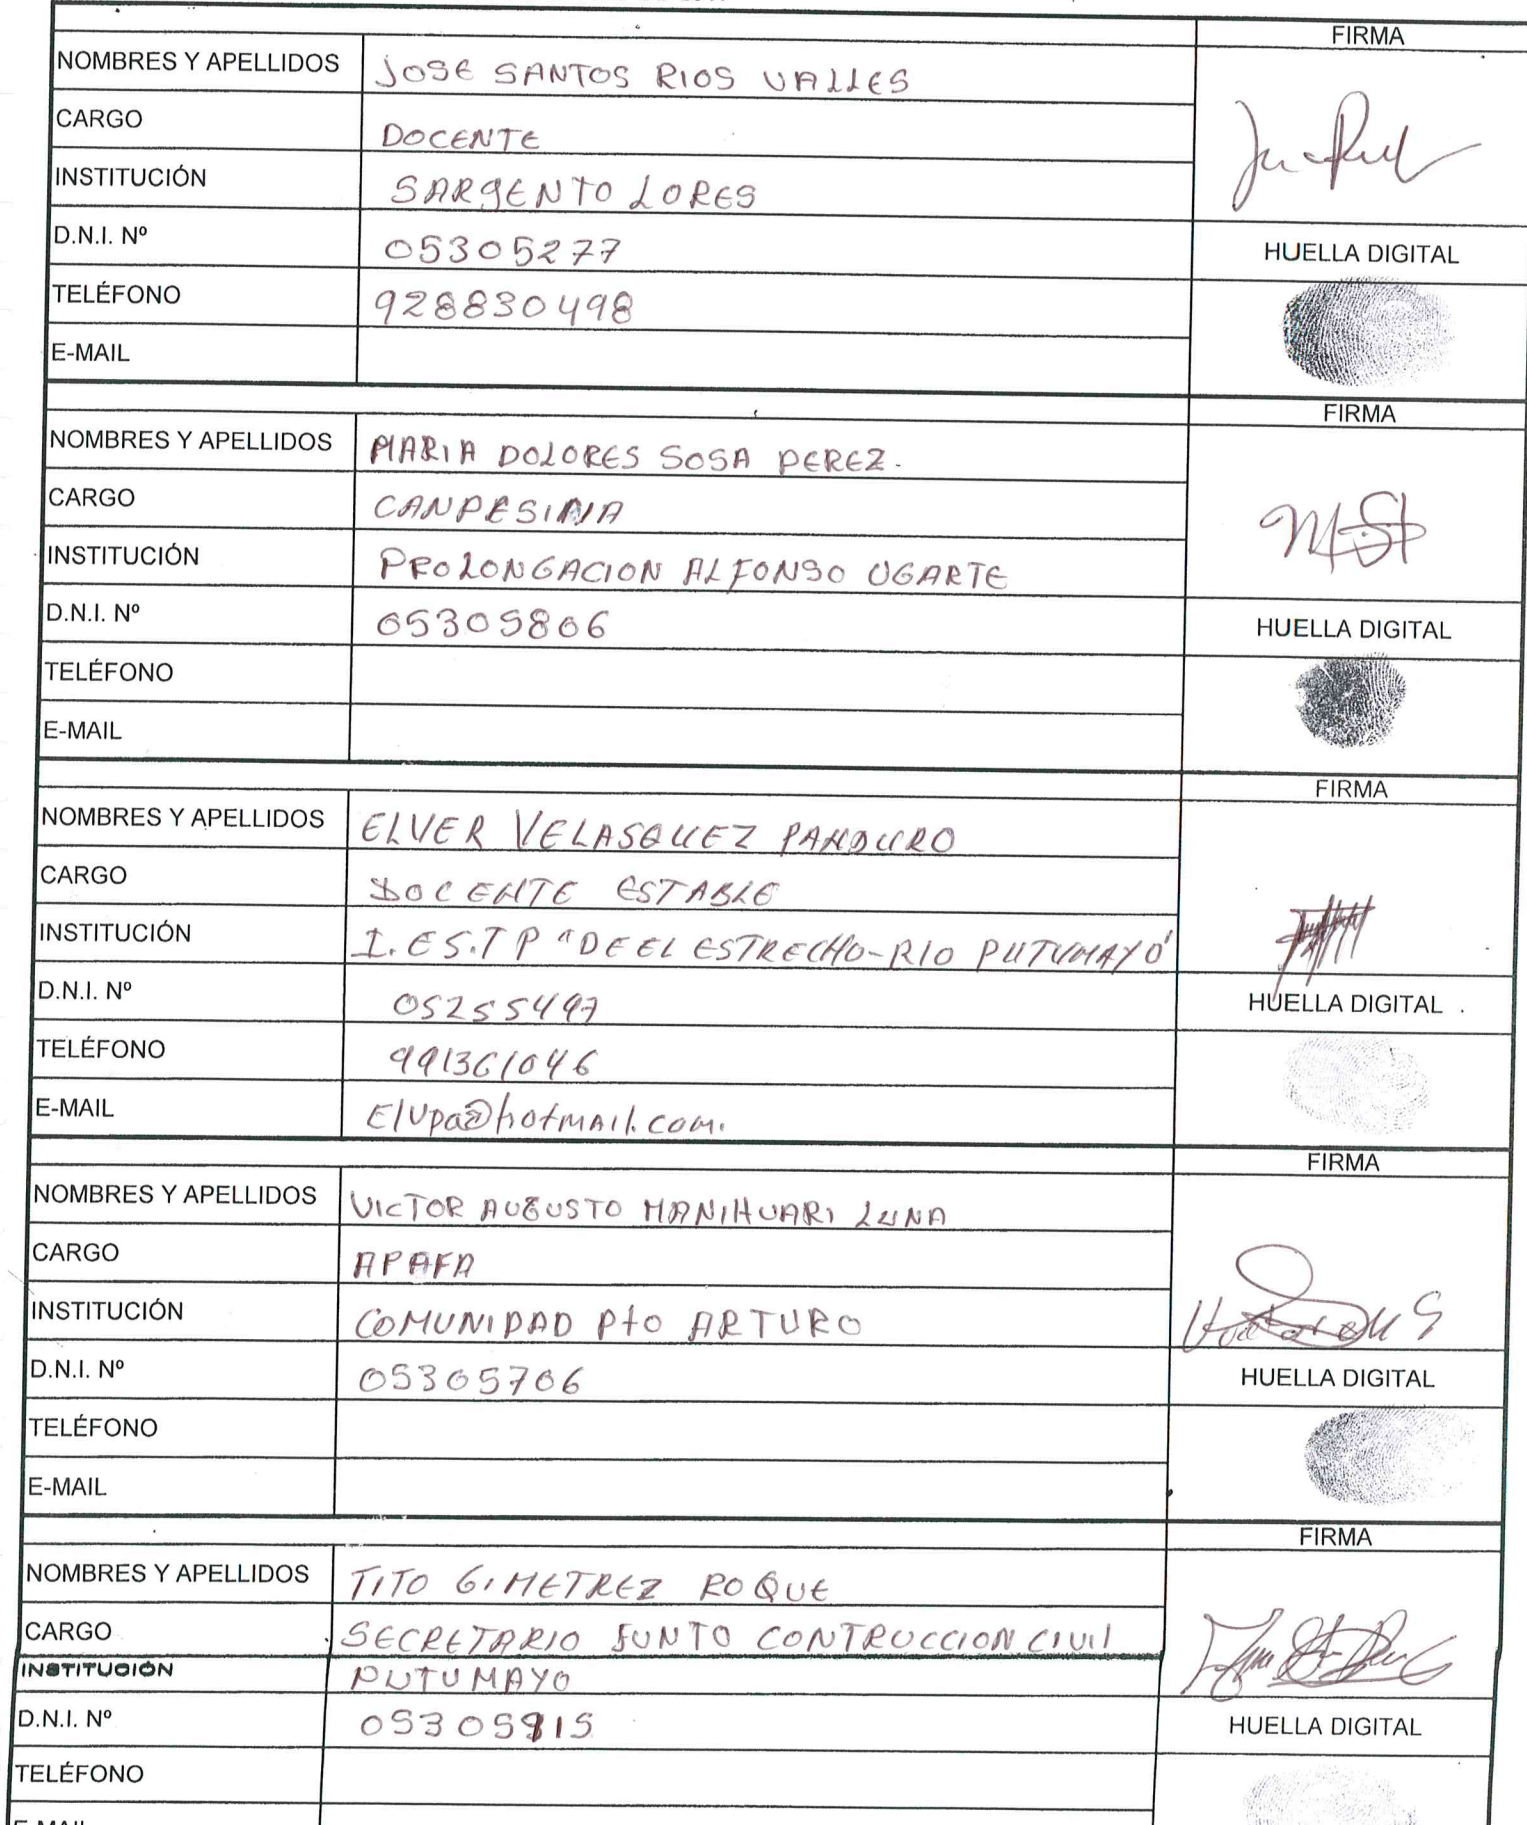 FIRMA
NOMBRES Y APELLIDOS JOSE SANTOS RIOS VALLES
CARGO DOCENTE
INSTITUCIÓN SARGENTO LORES
D.N.I. Nº 05305277
HUELLA DIGITAL
TELÉFONO 928830498
E-MAIL
FIRMA
NOMBRES Y APELLIDOS MARIA DOLORES SOSA PEREZ.
CARGO CANPESINA
INSTITUCIÓN PROLONGACION ALFONSO UGARTE
D.N.I. Nº 05305806
HUELLA DIGITAL
TELÉFONO
E-MAIL
FIRMA
NOMBRES Y APELLIDOS ELVER VELASQUEZ PANDURO
CARGO DOCENTE ESTABLE
INSTITUCIÓN I.ES.TP "DE EL ESTRECHO-RIO PUTUMAYO"
D.N.I. Nº 05255497
HUELLA DIGITAL
TELÉFONO 991361046
E-MAIL Elvpa@hotmail.com.
FIRMA
NOMBRES Y APELLIDOS VICTOR AUGUSTO MANIHUARI LUNA
CARGO APAFA
INSTITUCIÓN COMUNIDAD Pto ARTURO
D.N.I. Nº 05305706
HUELLA DIGITAL
TELÉFONO
E-MAIL
FIRMA
NOMBRES Y APELLIDOS TITO GIMETREZ ROQUE
CARGO SECRETARIO JUNTO CONTRUCCION CIVIL
INSTITUCIÓN PUTUMAYO
D.N.I. Nº
HUELLA DIGITAL
TELÉFONO
E-MAIL